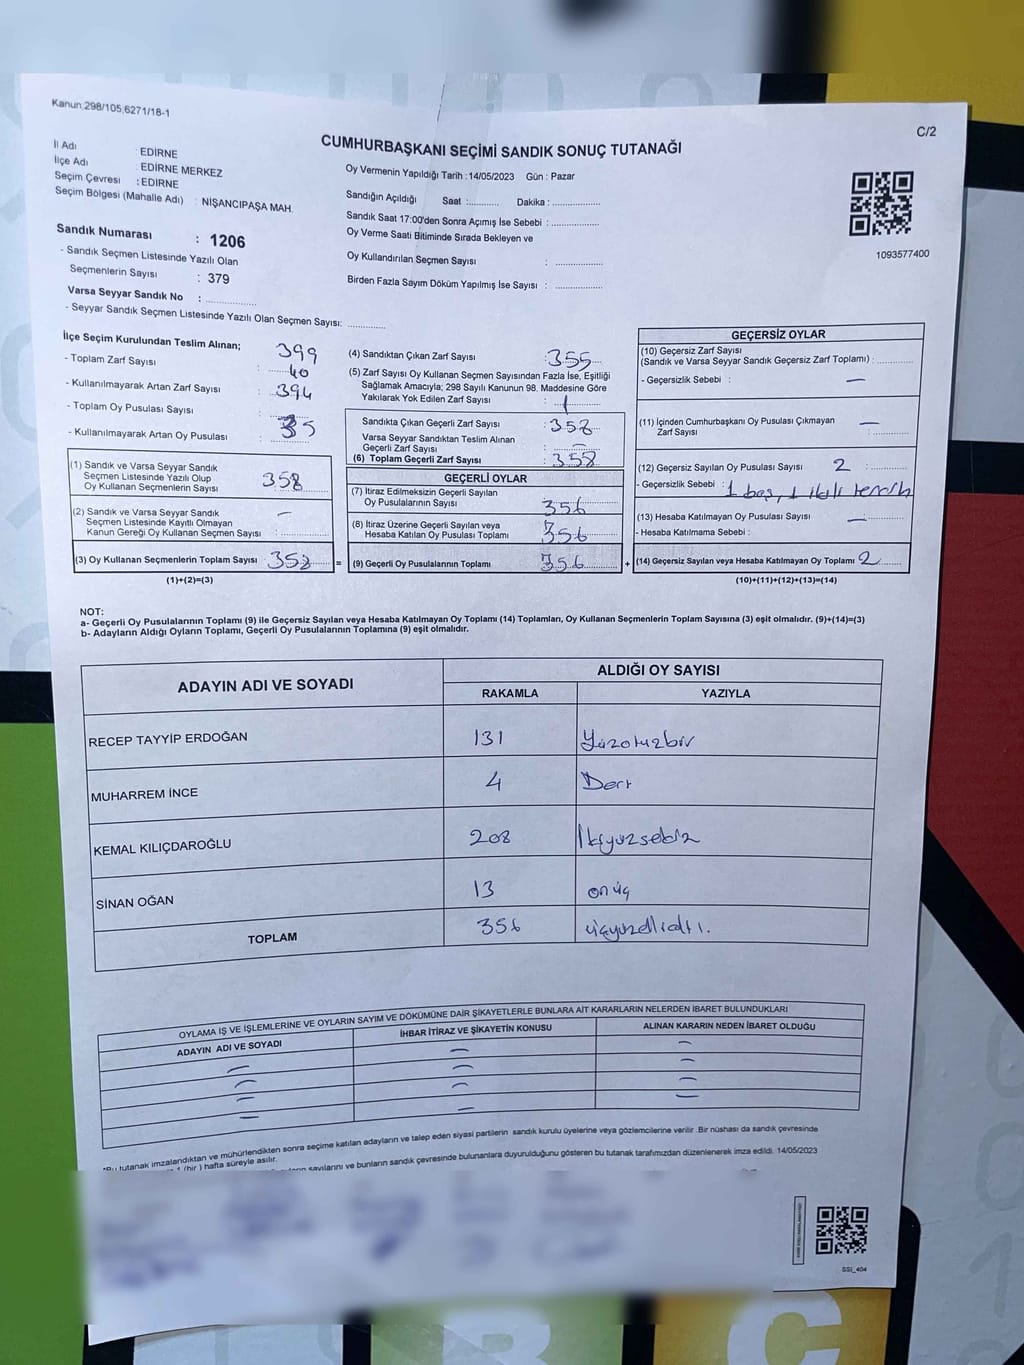 Kanun:298/105,6271/18-1
C/2
CUMHURBAŞKANI SEÇİMİ SANDIK SONUÇ TUTANAĞI
İl Adı : EDİRNE
İlçe Adı : EDİRNE MERKEZ
Seçim Çevresi : EDİRNE
Seçim Bölgesi (Mahalle Adı) : NİŞANCIPAŞA MAH.
Sandık Numarası : 1206
- Sandık Seçmen Listesinde Yazılı Olan
Seçmenlerin Sayısı : 379
Varsa Seyyar Sandık No : ..............
- Seyyar Sandık Seçmen Listesinde Yazılı Olan Seçmen Sayısı: ............
Oy Vermenin Yapıldığı Tarih : 14/05/2023 Gün : Pazar
Sandığın Açıldığı Saat :.......... Dakika : ................
Sandık Saat 17:00'den Sonra Açımış İse Sebebi : ................
Oy Verme Saati Bitiminde Sırada Bekleyen ve
Oy Kullandırılan Seçmen Sayısı : ................
Birden Fazla Sayım Döküm Yapılmış İse Sayısı : ................
1093577400
İlçe Seçim Kurulundan Teslim Alınan;
- Toplam Zarf Sayısı : 399
- Kullanılmayarak Artan Zarf Sayısı : 40
- Toplam Oy Pusulası Sayısı : 394
- Kullanılmayarak Artan Oy Pusulası : 35
(1) Sandık ve Varsa Seyyar Sandık
Seçmen Listesinde Yazılı Olup
Oy Kullanan Seçmenlerin Sayısı 358
(2) Sandık ve Varsa Seyyar Sandık
Seçmen Listesinde Kayıtlı Olmayan
Kanun Gereği Oy Kullanan Seçmen Sayısı : —
(3) Oy Kullanan Seçmenlerin Toplam Sayısı : 358 =
(1)+(2)=(3)
(4) Sandıktan Çıkan Zarf Sayısı :355
(5) Zarf Sayısı Oy Kullanan Seçmen Sayısından Fazla İse, Eşitliği
Sağlamak Amacıyla; 298 Sayılı Kanunun 98. Maddesine Göre
Yakılarak Yok Edilen Zarf Sayısı : 1
Sandıkta Çıkan Geçerli Zarf Sayısı : 358
Varsa Seyyar Sandıktan Teslim Alınan
Geçerli Zarf Sayısı : —
(6) Toplam Geçerli Zarf Sayısı : 358
GEÇERLİ OYLAR
(7) İtiraz Edilmeksizin Geçerli Sayılan
Oy Pusulalarının Sayısı 356
(8) İtiraz Üzerine Geçerli Sayılan veya
Hesaba Katılan Oy Pusulası Toplamı : 356
(9) Geçerli Oy Pusulalarının Toplamı : 356 +
GEÇERSİZ OYLAR
(10) Geçersiz Zarf Sayısı
(Sandık ve Varsa Seyyar Sandık Geçersiz Zarf Toplamı) : ............
- Geçersizlik Sebebi : —
(11) İçinden Cumhurbaşkanı Oy Pusulası Çıkmayan
Zarf Sayısı : —
(12) Geçersiz Sayılan Oy Pusulası Sayısı 2 : ............
- Geçersizlik Sebebi : 1 boş, 1 ikili tercih
(13) Hesaba Katılmayan Oy Pusulası Sayısı : —
- Hesaba Katılmama Sebebi :
(14) Geçersiz Sayılan veya Hesaba Katılmayan Oy Toplamı 2
(10)+(11)+(12)+(13)=(14)
NOT:
a- Geçerli Oy Pusulalarının Toplamı (9) ile Geçersiz Sayılan veya Hesaba Katılmayan Oy Toplamı (14) Toplamları, Oy Kullanan Seçmenlerin Toplam Sayısına (3) eşit olmalıdır. (9)+(14)=(3)
b- Adayların Aldığı Oyların Toplamı, Geçerli Oy Pusulalarının Toplamına (9) eşit olmalıdır.
ADAYIN ADI VE SOYADI ALDIĞI OY SAYISI
RAKAMLA YAZIYLA
RECEP TAYYİP ERDOĞAN 131 Yüzotuzbir
MUHARREM İNCE 4 Dört
KEMAL KILIÇDAROĞLU 208 İkiyüzsekiz
SİNAN OĞAN 13 onüç
TOPLAM 356 üçyüzellialtı.
OYLAMA İŞ VE İŞLEMLERİNE VE OYLARIN SAYIM VE DÖKÜMÜNE DAİR ŞİKAYETLERLE BUNLARA AİT KARARLARIN NELERDEN İBARET BULUNDUKLARI
ADAYIN ADI VE SOYADI İHBAR İTİRAZ VE ŞİKAYETİN KONUSU ALINAN KARARIN NEDEN İBARET OLDUĞU
— — —
— — —
— — —
— — —
*Bu tutanak imzalandıktan ve mühürlendikten sonra seçime katılan adayların ve talep eden siyasi partilerin sandık kurulu üyelerine veya gözlemcilerine verilir .Bir nüshası da sandık çevresinde
1 (bir ) hafta süreyle asılır.
sayılarını ve bunların sandık çevresinde bulunanlara duyurulduğunu gösteren bu tutanak tarafımızdan düzenlenerek imza edildi. 14/05/2023
SSİ_404